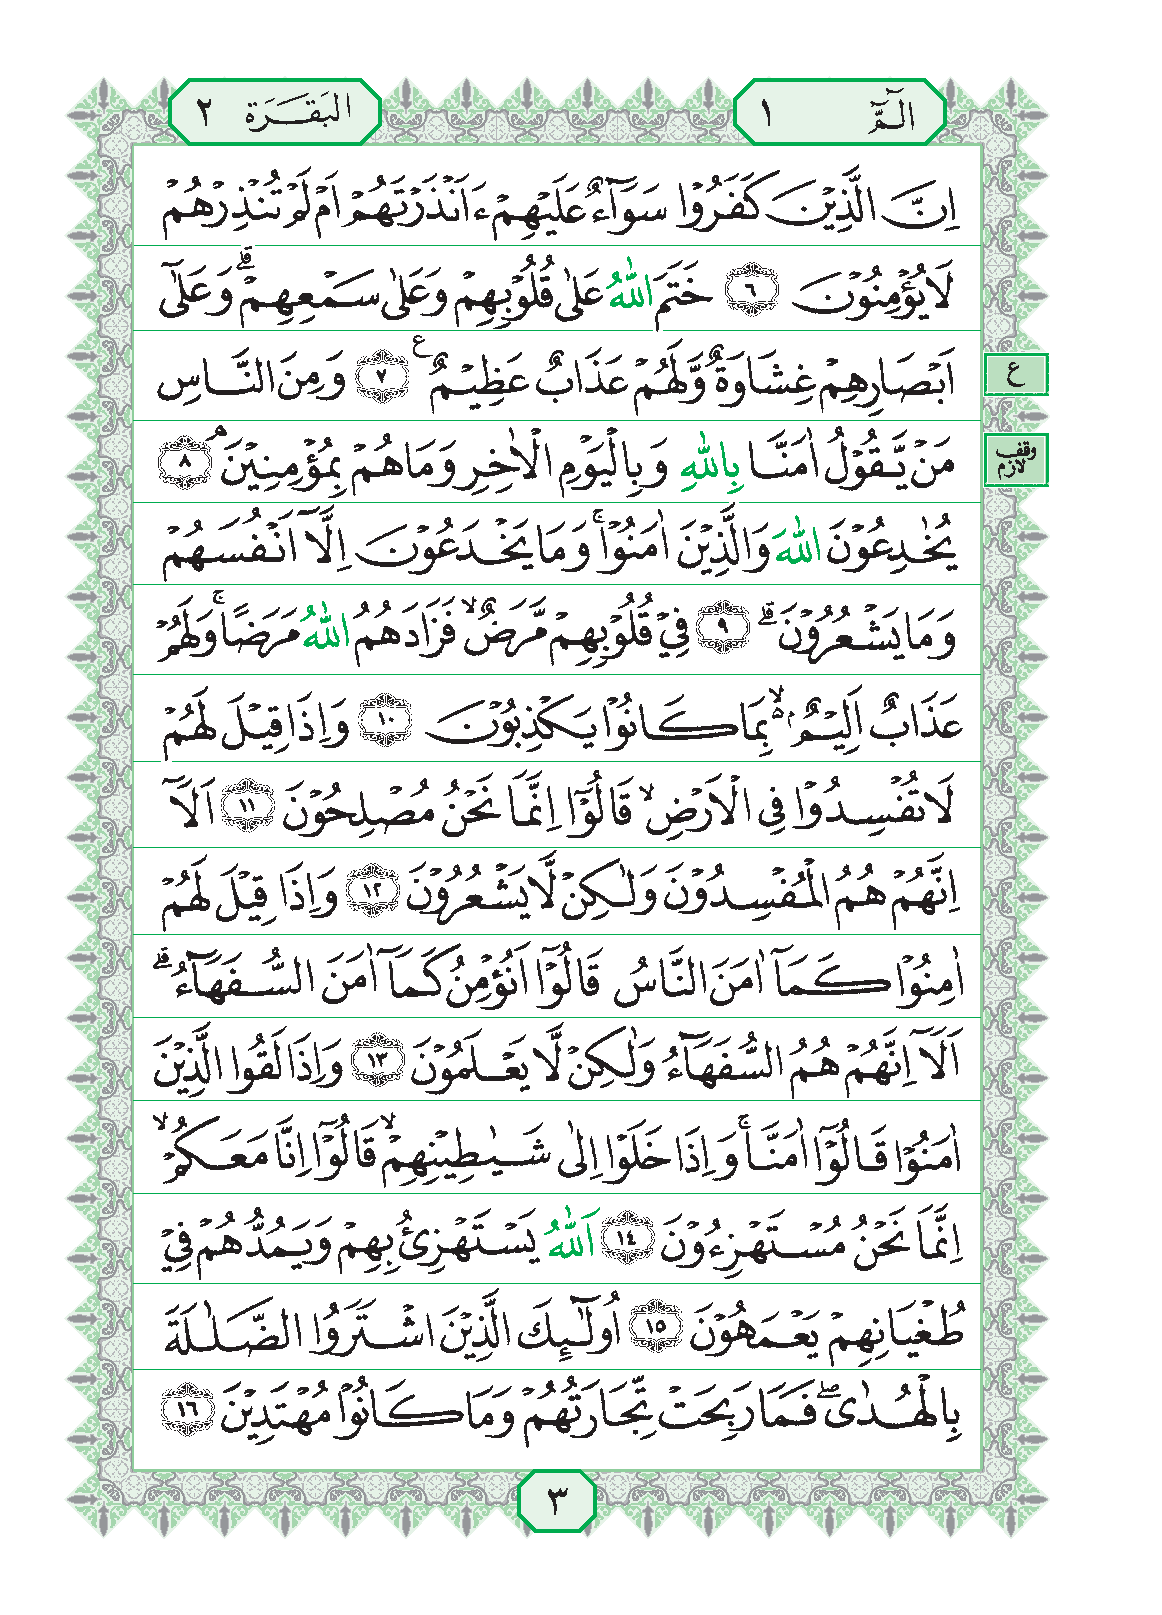 الٓمّٓ ١
البَقَرَة ٢
اِنَّ الَّذِيْنَ كَفَرُوْا سَوَآءٌ عَلَيْهِمْ ءَاَنْذَرْتَهُمْ اَمْ لَمْ تُنْذِرْهُمْ
لَا يُؤْمِنُوْنَ ۶ خَتَمَ اللّٰهُ عَلٰى قُلُوْبِهِمْ وَعَلٰى سَمْعِهِمْ ؕ وَعَلٰٓى
اَبْصَارِهِمْ غِشَاوَةٌ وَّلَهُمْ عَذَابٌ عَظِيْمٌ ۷ وَمِنَ النَّاسِ
ع
مَنْ يَّقُوْلُ اٰمَنَّا بِاللّٰهِ وَبِالْيَوْمِ الْاٰخِرِ وَمَا هُمْ بِمُؤْمِنِيْنَ ۘ ۸
وقف لازم
يُخٰدِعُوْنَ اللّٰهَ وَالَّذِيْنَ اٰمَنُوْا ۚ وَمَا يَخْدَعُوْنَ اِلَّآ اَنْفُسَهُمْ
وَمَا يَشْعُرُوْنَ ؕ ۹ فِيْ قُلُوْبِهِمْ مَّرَضٌ ۙ فَزَادَهُمُ اللّٰهُ مَرَضًا ۚ وَلَهُمْ
عَذَابٌ اَلِيْمٌ ۢ ۙ بِمَا كَانُوْا يَكْذِبُوْنَ ۱۰ وَاِذَا قِيْلَ لَهُمْ
لَا تُفْسِدُوْا فِى الْاَرْضِ ۙ قَالُوْٓا اِنَّمَا نَحْنُ مُصْلِحُوْنَ ۱۱ اَلَآ
اِنَّهُمْ هُمُ الْمُفْسِدُوْنَ وَلٰكِنْ لَّا يَشْعُرُوْنَ ۱۲ وَاِذَا قِيْلَ لَهُمْ
اٰمِنُوْا كَمَآ اٰمَنَ النَّاسُ قَالُوْٓا اَنُؤْمِنُ كَمَآ اٰمَنَ السُّفَهَآءُ ؕ
اَلَآ اِنَّهُمْ هُمُ السُّفَهَآءُ وَلٰكِنْ لَّا يَعْلَمُوْنَ ۱۳ وَاِذَا لَقُوا الَّذِيْنَ
اٰمَنُوْا قَالُوْٓا اٰمَنَّا ۚ وَاِذَا خَلَوْا اِلٰى شَيٰطِيْنِهِمْ ۙ قَالُوْٓا اِنَّا مَعَكُمْ ۙ
اِنَّمَا نَحْنُ مُسْتَهْزِءُوْنَ ۱٤ اَللّٰهُ يَسْتَهْزِئُ بِهِمْ وَيَمُدُّهُمْ فِيْ
طُغْيَانِهِمْ يَعْمَهُوْنَ ۱۵ اُولٰٓئِكَ الَّذِيْنَ اشْتَرَوُا الضَّلٰلَةَ
بِالْهُدٰى ۪ فَمَا رَبِحَتْ تِّجَارَتُهُمْ وَمَا كَانُوْا مُهْتَدِيْنَ ۱٦
٣